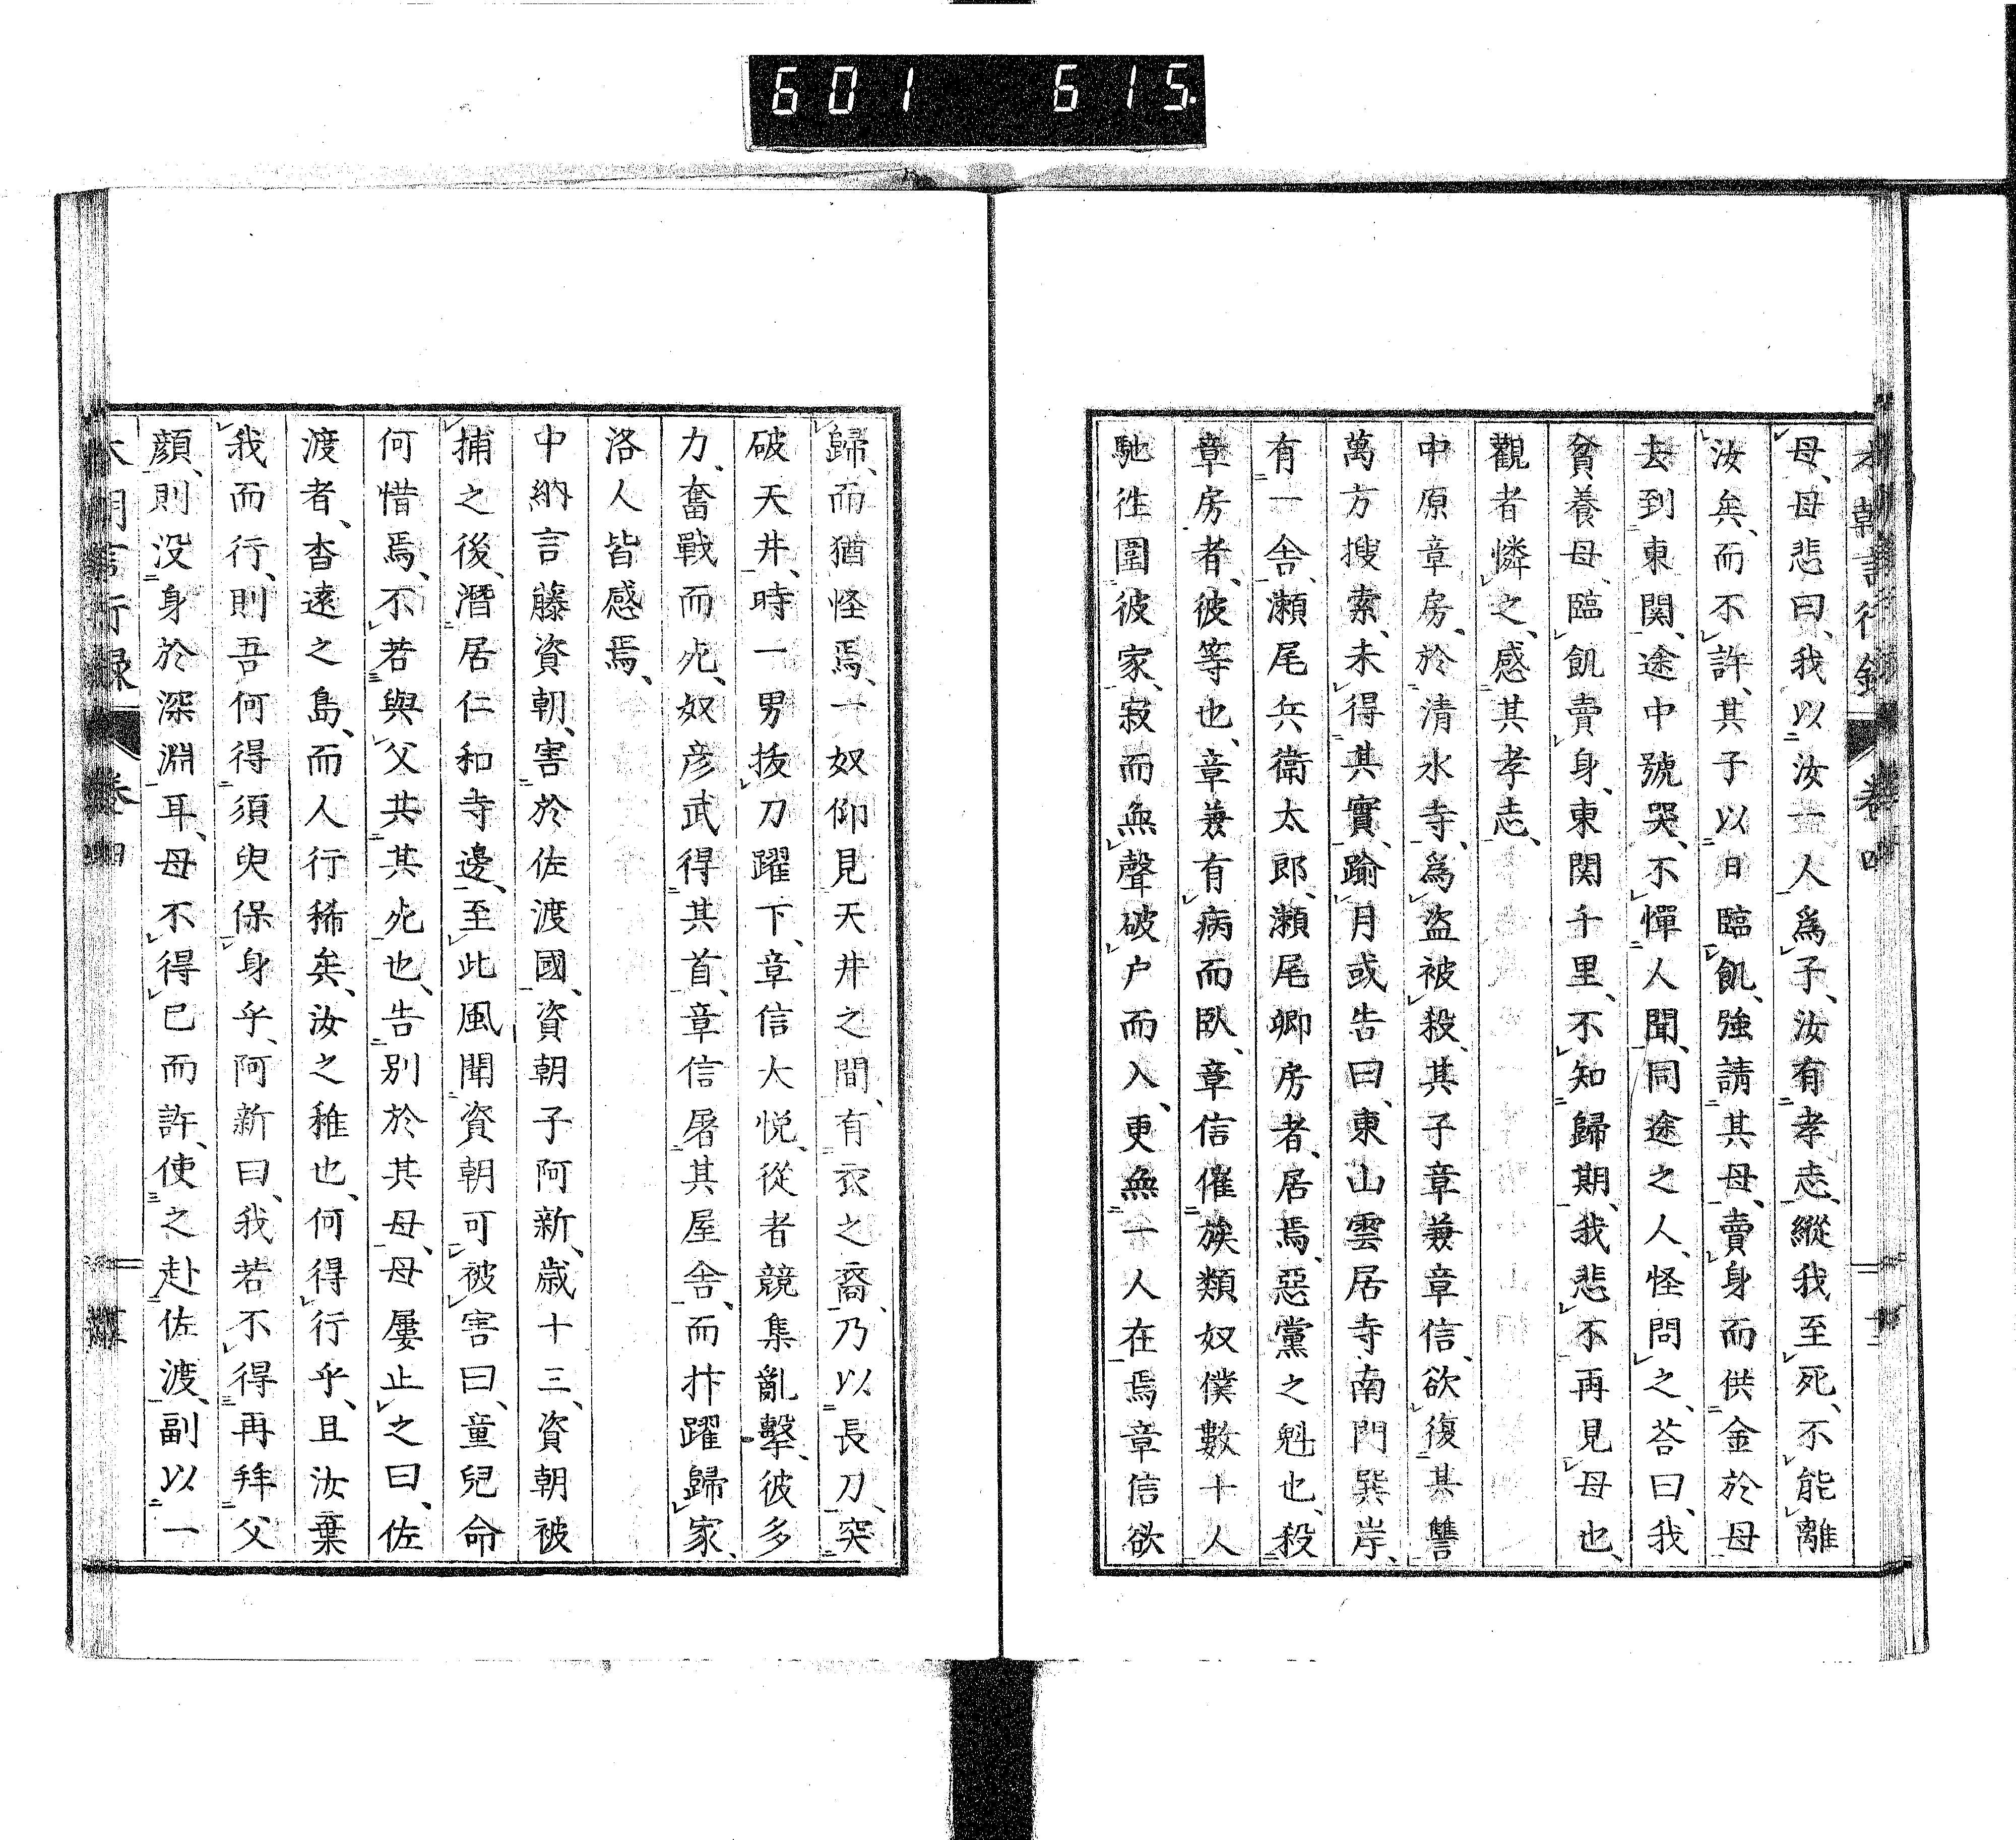 601 615.
本朝言行録 卷四
母、母悲曰、我以汝一人爲子、汝有孝志、縱我至死、不能離
汝矣、而不許、其子以日臨飢、強請其母、賣身而供金於母
去到東関、途中號哭、不憚人聞、同途之人、怪問之、荅曰、我
貧養母、臨飢賣身、東関千里、不知歸期、我悲不再見母也、
觀者憐之、感其孝志、
中原章房、於清水寺、爲盜被殺、其子章兼章信、欲復其讐
萬方搜索、未得其實、踰月或告曰、東山雲居寺南門巽岸、
有一舎、瀬尾兵衛太郎、瀬尾卿房者、居焉、惡黨之魁也、殺
章房者、彼等也、章兼有病而臥、章信催族類奴僕數十人
馳往圍彼家、寂而無聲破户而入、更無一人在焉章信欲
歸、而猶怪焉、一奴仰見天井之間、有衣之裔、乃以長刀、突
破天井、時一男抜刀躍下、章信大悦、從者競集亂擊、彼多
力、奮戰而死、奴彦武得其首、章信屠其屋舎、而抃躍歸家、
洛人皆感焉、
中納言藤資朝、害於佐渡國、資朝子阿新、歳十三、資朝被
捕之後、潛居仁和寺邊、至此風聞資朝可被害曰、童兒命
何惜焉、不若與父共其死也、告別於其母、母屢止之曰、佐
渡者、杳遠之島、而人行稀矣、汝之稚也、何得行乎、且汝棄
我而行、則吾何得須臾保身乎、阿新曰、我若不得再拜父
顔、則没身於深淵耳、母不得已而許、使之赴佐渡、副以一
本朝言行録 卷四